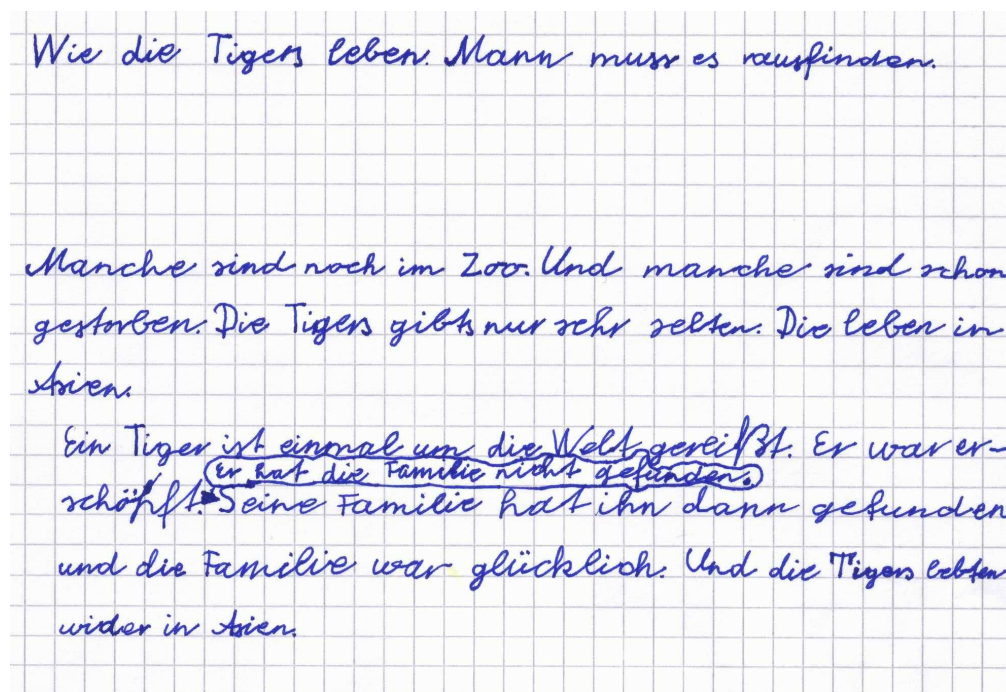 Wie die Tigers leben. Mann muss es rausfinden.
Manche sind noch im Zoo. Und manche sind schon
gestorben. Die Tigers gibts nur sehr selten. Die leben in
Asien.
Ein Tiger ist einmal um die Welt gereißt. Er war er-
Er hat die Familie nicht gefunden.
schöpft. Seine Familie hat ihn dann gefunden
und die Familie war glücklich. Und die Tigers lebten
wider in Asien.